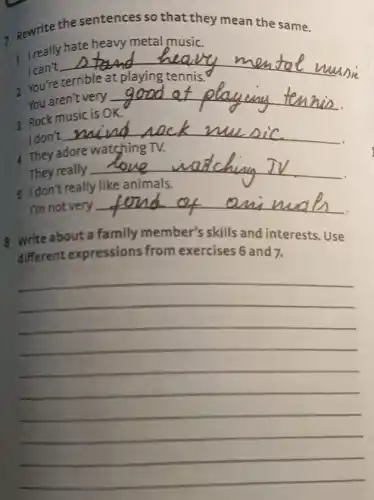 7 Rewrite the sentences so that they mean the same.
1 I really hate heavy metal music.
I can't stand heavy mental music
2 You're terrible at playing tennis.
You aren't very good at playing tennis.
3 Rock music is OK.
I don't mind rock music.
4 They adore watching TV.
They really love watching TV.
5 I don't really like animals.
I'm not very fond of animals.
8 Write about a family member's skills and interests. Use
different expressions from exercises 6 and 7.